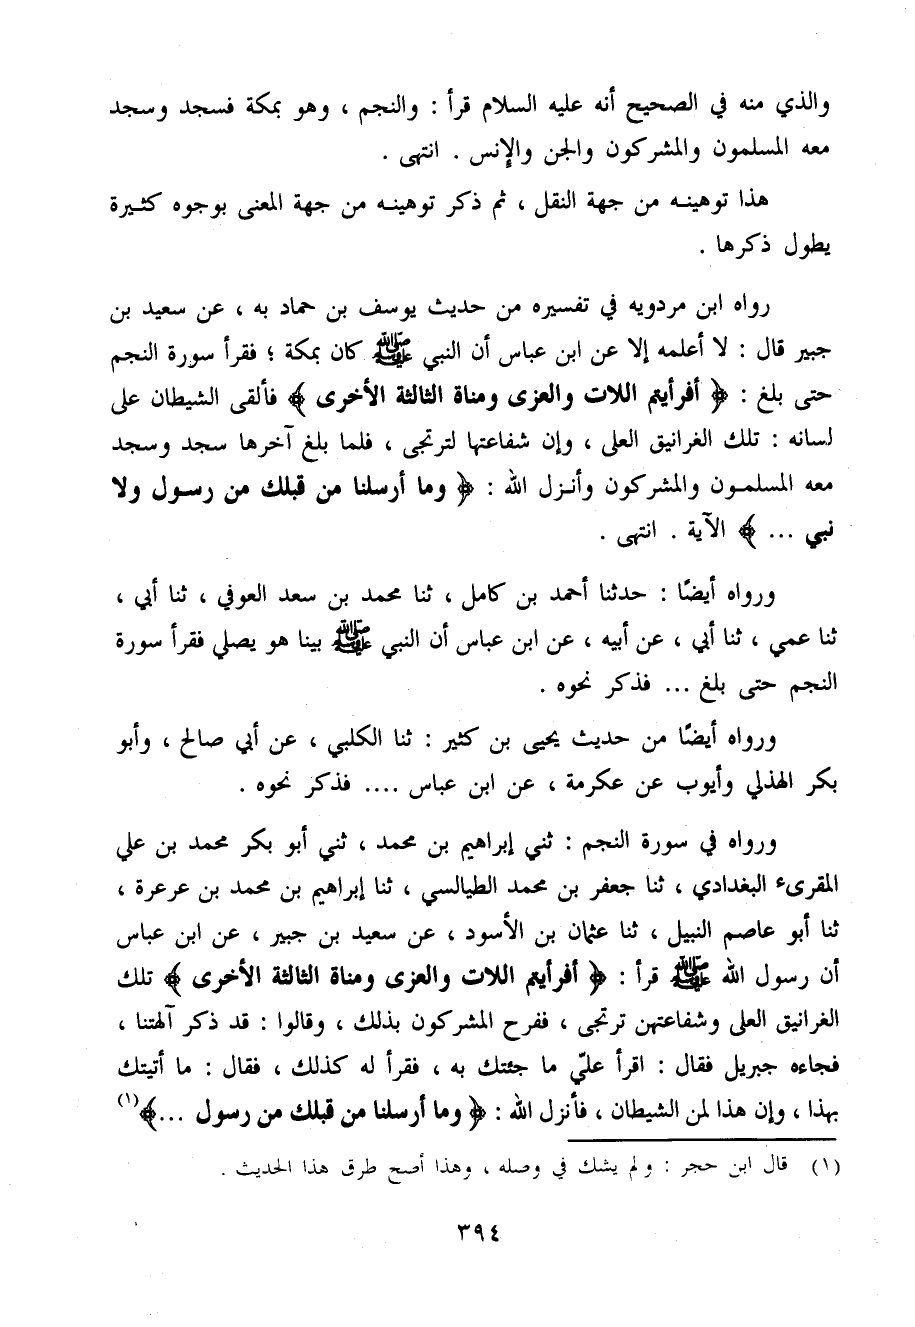 والذي منه في الصحيح أنه عليه السلام قرأ : والنجم ، وهو بمكة فسجد وسجد
معه المسلمون والمشركون والجن والإنس . انتهى .
هذا توهينـه من جهة النقل ، ثم ذكر توهينـه من جهة المعنى بوجوه كثـيرة
يطول ذكرها .
رواه ابن مردويه في تفسيره من حديث يوسف بن حماد به ، عن سعيد بن
جبير قال : لا أعلمه إلا عن ابن عباس أن النبي ﷺ كان بمكة ؛ فقرأ سورة النجم
حتى بلغ : ﴿ أفرأيتم اللات والعزى ومناة الثالثة الأخرى ﴾ فألقى الشيطان على
لسانه : تلك الغرانيق العلى ، وإن شفاعتها لترتجى ، فلما بلغ آخرها سجد وسجد
معه المسلمـون والمشركون وأنـزل الله : ﴿ وما أرسلنا من قبلك من رسـول ولا
نبي ... ﴾ الآية . انتهى .
ورواه أيضًا : حدثنا أحمد بن كامل ، ثنا محمد بن سعد العوفي ، ثنا أبي ،
ثنا عمي ، ثنا أبي ، عن أبيه ، عن ابن عباس أن النبي ﷺ بينا هو يصلي فقرأ سورة
النجم حتى بلغ ... فذكر نحوه .
ورواه أيضًا من حديث يحيى بن كثير : ثنا الكلبي ، عن أبي صالح ، وأبو
بكر الهذلي وأيوب عن عكرمة ، عن ابن عباس .... فذكر نحوه .
ورواه في سورة النجم : ثني إبراهيم بن محمد ، ثني أبو بكر محمد بن علي
المقرىء البغدادي ، ثنا جعفر بن محمد الطيالسي ، ثنا إبراهيم بن محمد بن عرعرة ،
ثنا أبو عاصم النبيل ، ثنا عثمان بن الأسود ، عن سعيد بن جبير ، عن ابن عباس
أن رسول الله ﷺ قرأ : ﴿ أفرأيتم اللات والعزى ومناة الثالثة الأخرى ﴾ تلك
الغرانيق العلى وشفاعتهن ترتجى ، ففرح المشركون بذلك ، وقالوا : قد ذكر آلهتنا ،
فجاءه جبريل فقال : اقرأ عليّ ما جئتك به ، فقرأ له كذلك ، فقال : ما أتيتك
بهذا ، وإن هذا لمن الشيطان ، فأنزل الله : ﴿ وما أرسلنا من قبلك من رسول ...﴾(١)
(١) قال ابن حجر : ولم يشك في وصله ، وهذا أصح طرق هذا الحديث .
٣٩٤